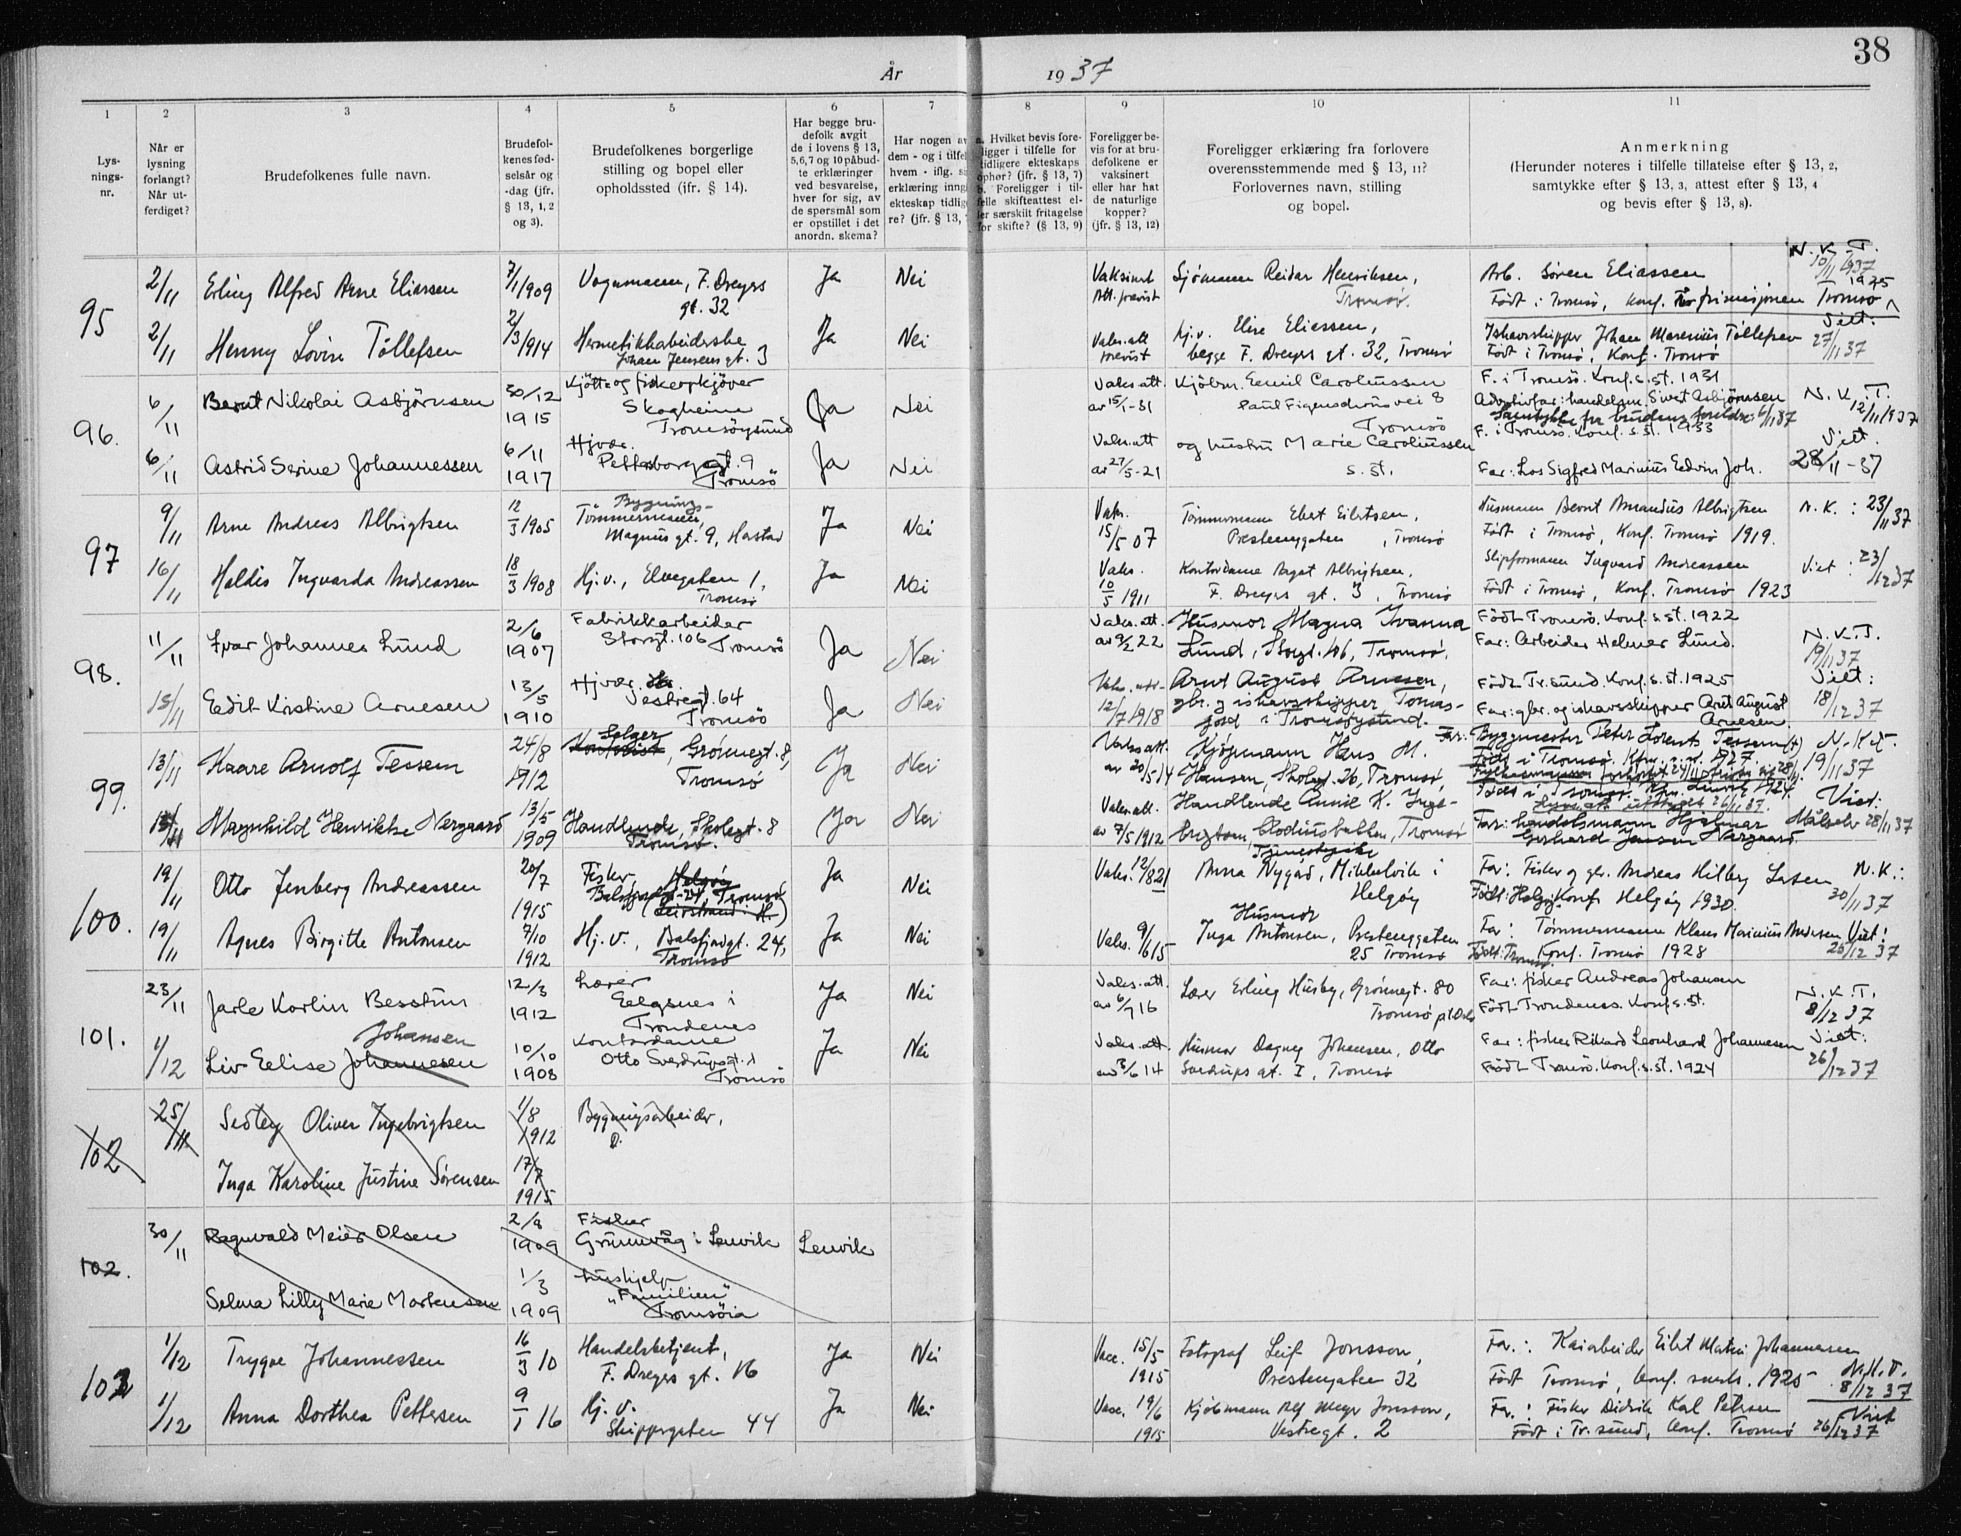 38
År 1937
1 2 3 4 5 6 7 8 9 10 11
Lys-
nings-
nr.
Når er
lysning
forlangt?
Når ut-
ferdiget?
Brudefolkenes fulle navn.
Brudefol-
kenes fød-
selsår og
-dag (jfr.
§ 13, 1, 2
og 3).
Brudefolkenes borgerlige
stilling og bopel eller
opholdssted (ifr. § 14).
Har begge bru-
defolk avgit
de i lovens § 13,
5,6,7 og 10 påbud-
te erklæringer
ved besvarelse,
hver for sig, av
de spørsmål som
er opstillet i det
anordn. skema?
Har nogen av
dem - og i tilfel
hvem - iflg. s
erklæring inng
ekteskap tidlig
re? (jfr. § 13,
a. Hvilket bevis fore-
ligger i tilfelle for
tidligere ekteskaps
ophør? (jfr. § 13, 7)
b. Foreligger i til-
felle skifteattest el-
ler særskilt fritagelse
for skifte? (§ 13, 9)
Foreligger be-
vis for at bru-
defolkene er
vaksinert
eller har hat
de naturlige
kopper?
(jfr. § 13, 12)
Foreligger erklæring fra forlovere
overensstemmende med § 13, 11?
Forlovernes navn, stilling
og bopel.
Anmerkning
(Herunder noteres i tilfelle tillatelse efter § 13, 2,
samtykke efter § 13, 3, attest efter § 13, 4
og bevis efter § 13, 8).
95
2/11 Erling Alfred Arne Eliassen 7/1 1909 Vognmann, F. Dreyers
gt. 32 Ja Nei Vaksinert
Att. forevist Sjömann Reidar Henriksen,
Tromsø. Arb. Søren Eliassen
Født i Tromsø, Konf. Tromsø 1925
N.K.T.
10/11 1937
2/11 Henny Lovise Tollefsen 2/3 1914 Hermetikkabeiderske
Johan Jensens gt. 3 Ja Nei Vaks.att
forevist Hj.v. Elise Eliassen,
begge F. Dreyers gt. 32, Tromsø Ishavsskipper Johan Marenius Tollefsen
Født i Tromsø, Konf. Tromsø
Viet:
27/11 37
96.
6/11 Bernt Nikolai Asbjörnsen 30/12
1915 Kjött- og fiskeopkjöver
Skogheim
Tromsöysund Ja Nei Vaks.att.
av 15/1-31 Kjöbm. Emil Caroliussen
Paul Figenschous vei 8
Tromsö F. i Tromsö. Konf. s. st. 1931
Adoptivfar: handelsm. Sivert Asbjörnsen
Samtykke fra brudens foreldre 6/11 37
N.K.T.
12/11 1937
6/11 Astrid Serine Johannessen 6/11
1917 Hjvær.
Pettersborggt. 9
Tromsö Ja Nei Vaks.att
av 27/5-21 og hustru Marie Caroliussen
s. st. F. i Tromsö. Konf. s. st. 1933
Far: Los Sigfred Marinius Edvin Joh.
Viet.
28/11-37
97
9/11 Arne Andreas Albrigtsen 12/3 1905 Bygnings-
Tømmermann,
Magnus gt. 9, Harstad Ja Nei Vaks.
15/5 07 Tømmermann Ebert Eilertsen,
Prestenggaten , Tromsø Husmann Bernt Amandus Albrigtsen
Født i Tromsø, Konf. Tromsø 1919.
N.K.: 23/11 37
16/11 Haldis Ingvarda Andreassen 18/3 1908 Hj.v., Elvegaten 1,
Tromsø Ja Nei Vaks.
10/5 1911 Kontordame Aagot Albrigtsen,
F. Dreyers gt. 3, Tromsø Slipformann Ingvard Andreassen
Født i Tromsø, Konf. Tromsø 1923
Viet: 23/12 37
98.
11/11 Ivar Johannes Lund 2/6
1907 Fabrikkarbeider
Storgt. 106 Tromsö Ja Nei Vaks.att.
av 9/2 22 Husmor Magna Ivanna
Lund, Storgt. 106, Tromsø. Födt Tromsö. Konf. s. st. 1922
Far: Arbeider Helmer Lund.
N.K.T.
19/11 37
13/11 Edit Kirstine Arnesen 13/5
1910 Hjvær.
Vestregt. 64
Tromsö Ja Nei Vaks. att.
12/7 1918 Arnt August Arnesen,
gbr. og ishavsskipper Tomas-
jord i Tromsøysund. Födt Tr.sund. Konf. s. st. 1925
Far: gbr. og ishavsskipper Arnt August
Arnesen.
Viet:
18/12 37
99.
13/11 Kaare Arnolf Tessem 24/8
1912 Selger
Kontorist, Grønnegt. 8,
Tromsø Ja Nei Vaks.att.
av 20/5 14 Kjöpmann Hans M.
Hansen, Skolegt. 26, Tromsø, Far: Byggmester Peter Lorents Tessem (†)
Født i Tromsø. Kfm. s. st. 1927.
N.K.T.
19/11 37
13/11 Magnhild Henrikke Nergaard 13/5
1909 Handlende, Skolegt. 8
Tromsø. Ja Nei Vaks.att.
av 7/5 1912 Handlende Annie K. Inge-
brigtsen, Clodiusbakken, Tromsø Far: handelsmann Hjalmar
Gerhard Jensen Nergaard
Viet:
Målselv 28/11 37
100.
19/11 Otto Jenberg Andreassen 20/7
1915 Fisker, Helgöy
Balsfjordgt. 24, Tromsø Ja Nei Vaks. 12/8 21 Tjenestepike
Anna Nygård, Mikkelvik i
Helgøy Far: Fisker og gbr. Andreas Hilberg Larsen
Født: Helgøy Konf. Helgøy 1930.
N.K.:
30/11 37
19/11 Agnes Birgitte Antonsen 7/10
1912 Hj.v., Balsfjordgt. 24,
Tromsø Ja Nei Vaks. 9/6 15 Husmor
Inga Antonsen, Prestenggaten
25 Tromsø Far: Tømmermann Klaus Marinius Andersen
Født: Tromsø. Konf. Tromsø 1928
Viet:
26/12 37
101.
23/11 Jarle Karlin Besstun 12/3
1912 Lærer
Eelgsnes i
Trondenes Ja Nei Vaks.att.
av 6/9 16 Lærer Erling Husby, Grønnegt. 80
Tromsø Far: fisker Andreas Johansen
Födt Trondenes. Konf. s. st.
N.K.T.
8/12 37
1/12 Johansen
Liv Eelise Johannesen 10/10
1908 Kontordame
Otto Sverdrupsgt. 1
Tromsö Ja Nei Vaks.att.
av 3/6 14 Husmor Dagny Johansen, Otto
Sverdrups gt. I, Tromsø Far: fisker Rikard Leonhard Johannesen
Födt Tromsö. Konf. s. st. 1924
Viet:
26/12 37
102
25/11 Sedley Oliver Ingebrigtsen 1/8
1912 Bygningsarbeider,
Inga Karoline Justine Sørensen 17/7
1915
102.
30/11 Ragnvald Meier Olsen 2/8
1909 Fisker
Grunnvåg i Lenvik Lenvik
Selma Lilly Marie Mortensen 1/3
1909 Hushjelp
"Familien"
Tromsöia
103
1/12 Trygve Johannessen 16/3 10 Handelsbetjent,
F. Dreyers gt. 16 Ja Nei Vacc. 15/5
1915 Fotograf Leif Jonsson,
Prestengaten 32 Far: Kaiarbeider Eilert Mathei Johannessen
Født Tromsø, konf. smst. 1925
N.K.T.
8/12 37
1/12 Anna Dorthea Pettersen 9/1 16 Hj.v.
Skippergaten 44 Ja Nei Vacc. 19/6
1915 Kjøbmann Alf Meyer Jonsson,
Vestregt. 2 Far: Fisker Didrik Karl Petersen
Født i Tr.sund, konf. Tromsø
Viet
26/12 37